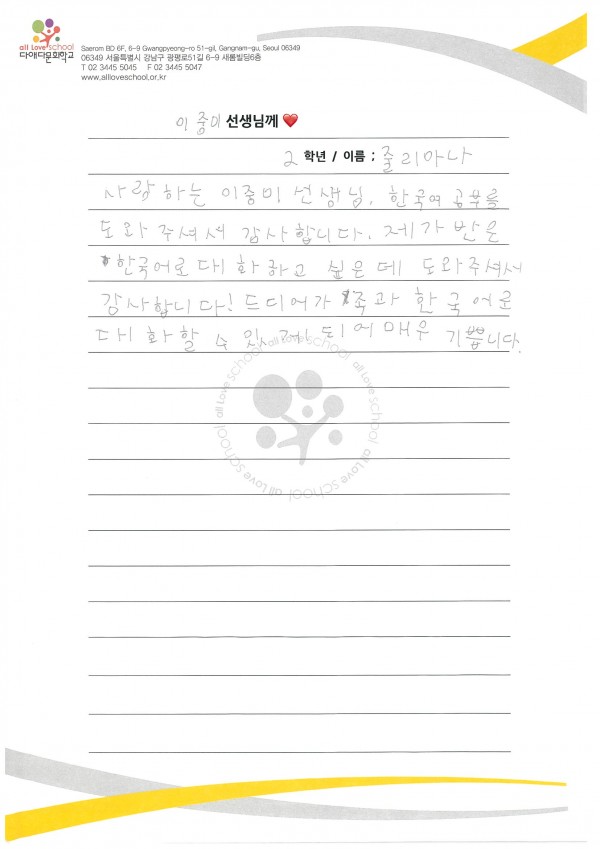 all Love school
다애다문화학교
Saerom BD 6F, 6-9 Gwangpyeong-ro 51-gil, Gangnam-gu, Seoul 06349
06349 서울특별시 강남구 광평로51길 6-9 새롬빌딩6층
T 02 3445 5045 F 02 3445 5047
www.allloveschool.or.kr
이중미 선생님께
2 학년 / 이름 : 줄리아나
사랑하는 이중미 선생님, 한국여 공부를
도와 주셔서 감사합니다. 제가 반은
한국어로 대화하고 싶은데 도와주셔서
감사합니다! 드디어 가족과 한국어로
대화할 수 있게 되어 매우 기쁩니다.
all Love school all Love school all Love school all Love school